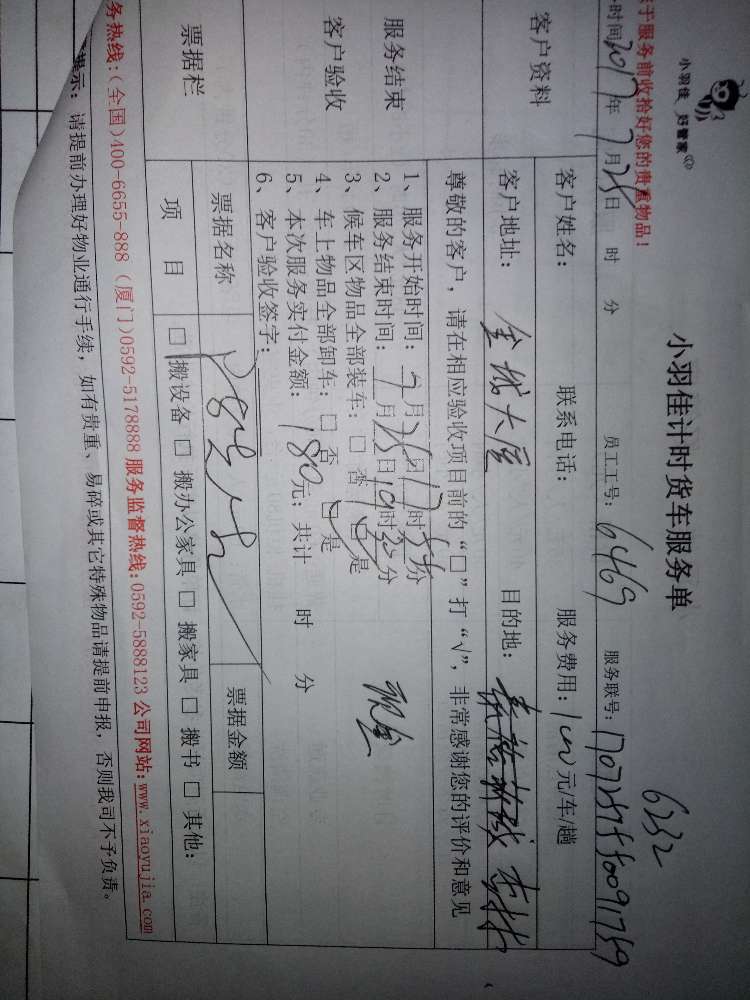 小羽佳 好管家
小羽佳计时货车服务单
6232
于服务前收拾好您的贵重物品!
时间2017年7月28日 时 分 员工工号: 6469 服务联号:
客户资料 客户姓名: 联系电话: 服务费用:100元/车/趟
客户地址: 金城大厦 目的地:
尊敬的客户,请在相应验收项目前的“□”打“√”,非常感谢您的评价和意见
服务结束
客户验收
1、服务开始时间: 7月 日17时 分
2、服务结束时间: 7月 日19时 分
3、候车区物品全部装车:□ 否 □ 是
现金
4、车上物品全部卸车:□ 否 □ 是
5、本次服务实付金额: 180元;共计 时 分
6、客户验收签字:
票据栏 票据名称 票据金额
项 目 □ 搬设备 □ 搬办公家具 □ 搬家具 □ 搬书 □ 其他:
务热线:(全国)400-6655-888 (厦门)0592-5178888 服务监督热线:0592-5888123 公司网站:www.xiaoyujia.com
示: 请提前办理好物业通行手续,如有贵重、易碎或其它特殊物品请提前申报,否则我司不予负责。